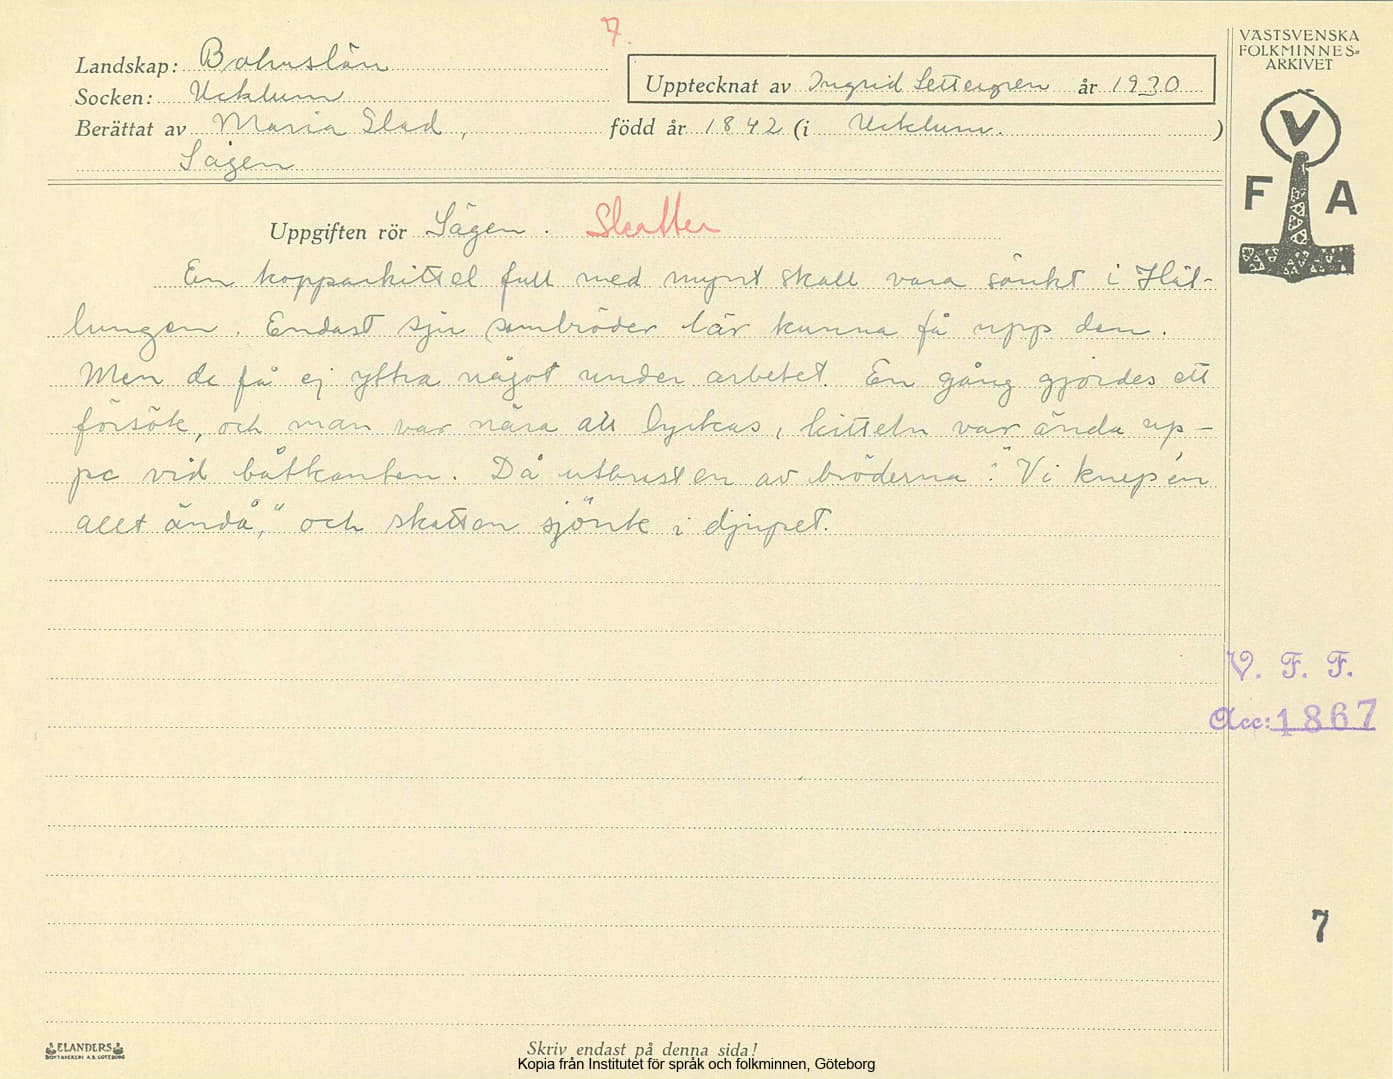 7.
VÄSTSVENSKA
FOLKMINNES-
ARKIVET
Landskap: Bohuslän
Upptecknat av Ingrid Settergren år 1930
Socken: Ucklum
Berättat av Maria Glad, född år 1842 (i Ucklum. )
Sägen
V
F A
Uppgiften rör Sägen. Skatter
En kopparkittel full med mynt skall vara sänkt i Häl-
lungen. Endast sju sombröder lär kunna få upp den.
Men de få ej yttra något under arbetet. En gång gjordes ett
försök, och man var nära att lyckas, kitteln var ända up-
pe vid båtkanten. Då utbrast en av bröderna: "Vi knep'en
allt ändå," och skatten sjönk i djupet.
V. F. F.
Acc: 1867
7
ELANDERS
BOKTRYCKERI A.B. GÖTEBORG
Skriv endast på denna sida!
Kopia från Institutet för språk och folkminnen, Göteborg